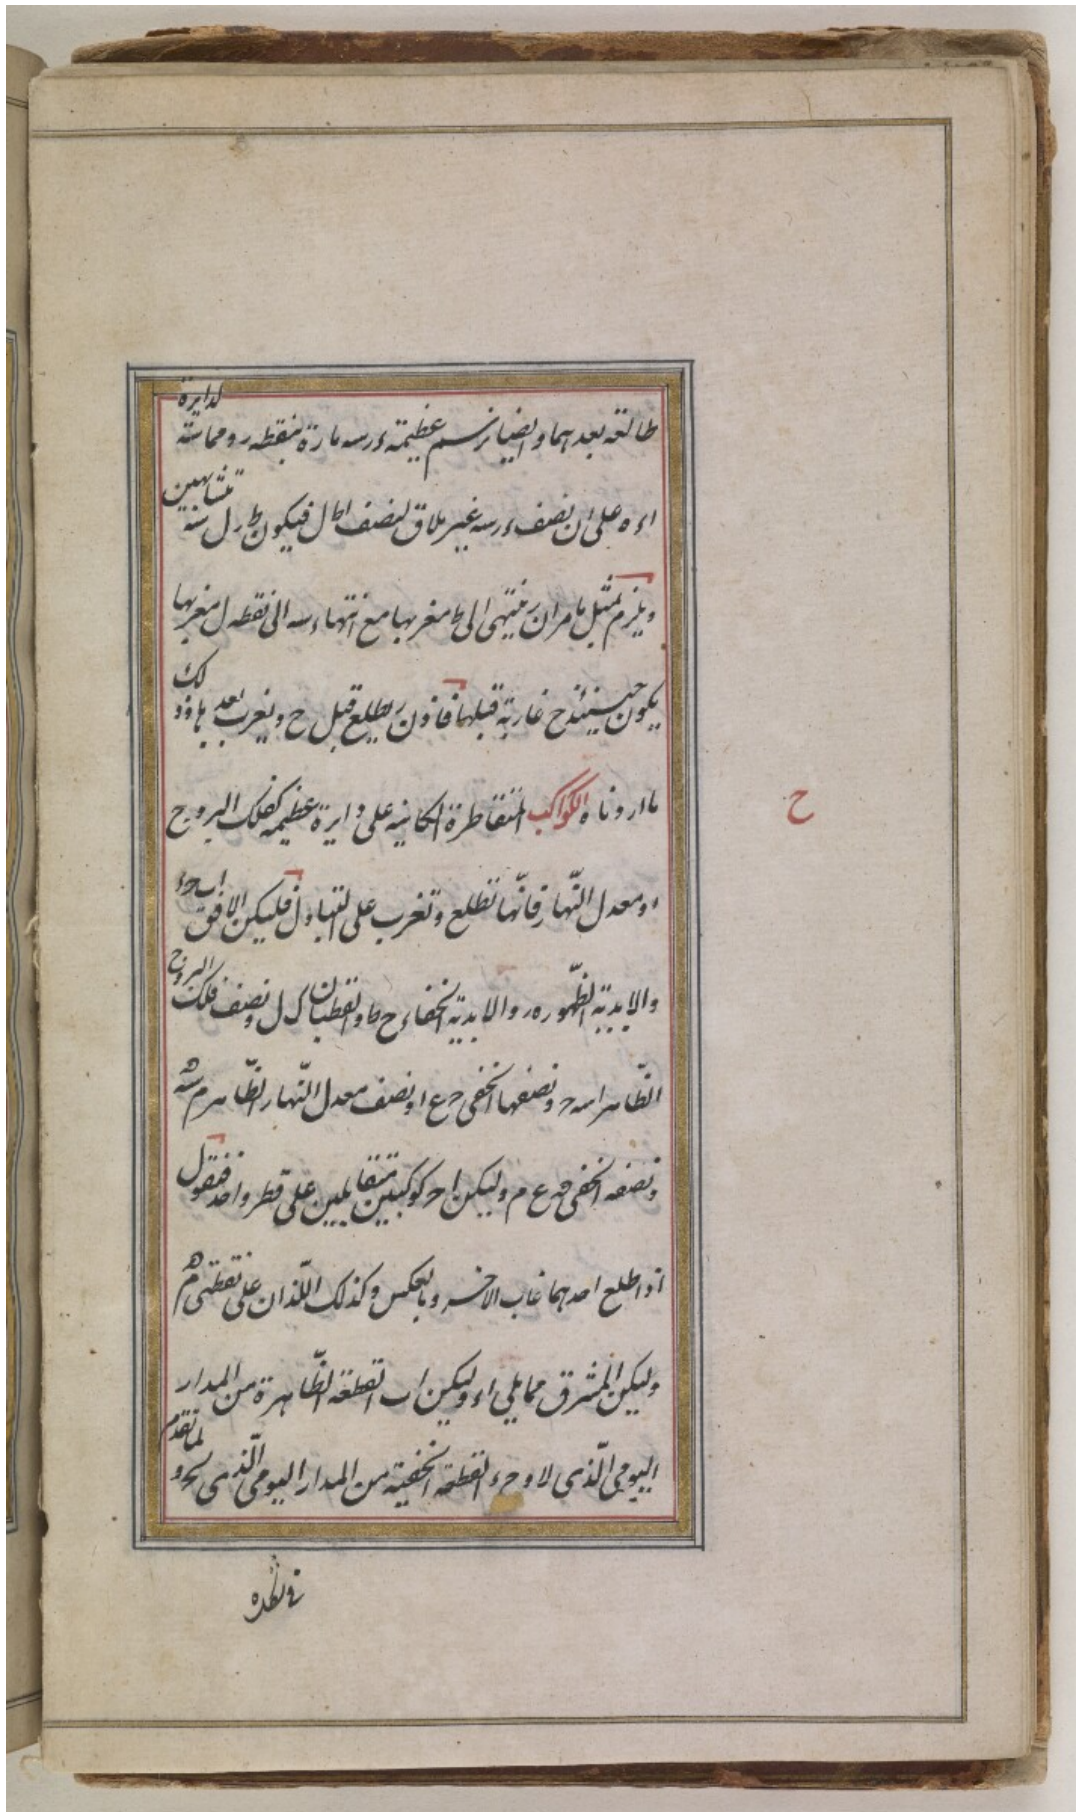 طالعة بعدهما وايضا نرسم عظيمة ءرسه مارة بنقطه ر ومماسة لدايرة
اءه على ان نصف ءرسه غير ملاق لنصف اطال فيكون ط ر ل سه متشابهين
ويلزم بمثل ما مر ان ر ينتهى الى ط مغربها مع انتهاء سه الى نقطه ل مغربها
يكون حينئذ ح غاربة قبلها فاذن ر يطلع قبل ح ويغرب بعدها وذلك
ما اردناه الكواكب المتقاطرة الكاينه على دايرة عظيمه كفلك البروج
ح
او معدل النّهار فانّها تطلع وتغرب على التبادل فليكن الافق ابحء
والابديّة الظّهور ه ر والابديّة الخفاء ح ط والقطبان ك ل ونصف فلك البروج
الظّاهر اسه ح ونصفها الخفى ح ع ا ونصف معدل النّهار الظّاهر م سه
ونصفه الخفى ع م وليكن ا ح كوكبين متقابلين على قطر واحد فنقول
اذا طلع احدهما غاب الاخر وبالعكس وكذلك اللّذان على نقطتى م ه
وليكن المشرق مما يلى اء وليكن اب القطعة الظّاهرة من المدار
اليومى الّذى لا و حء القطعة الخفية من المدار اليومى الّذى لح و لما تقدم